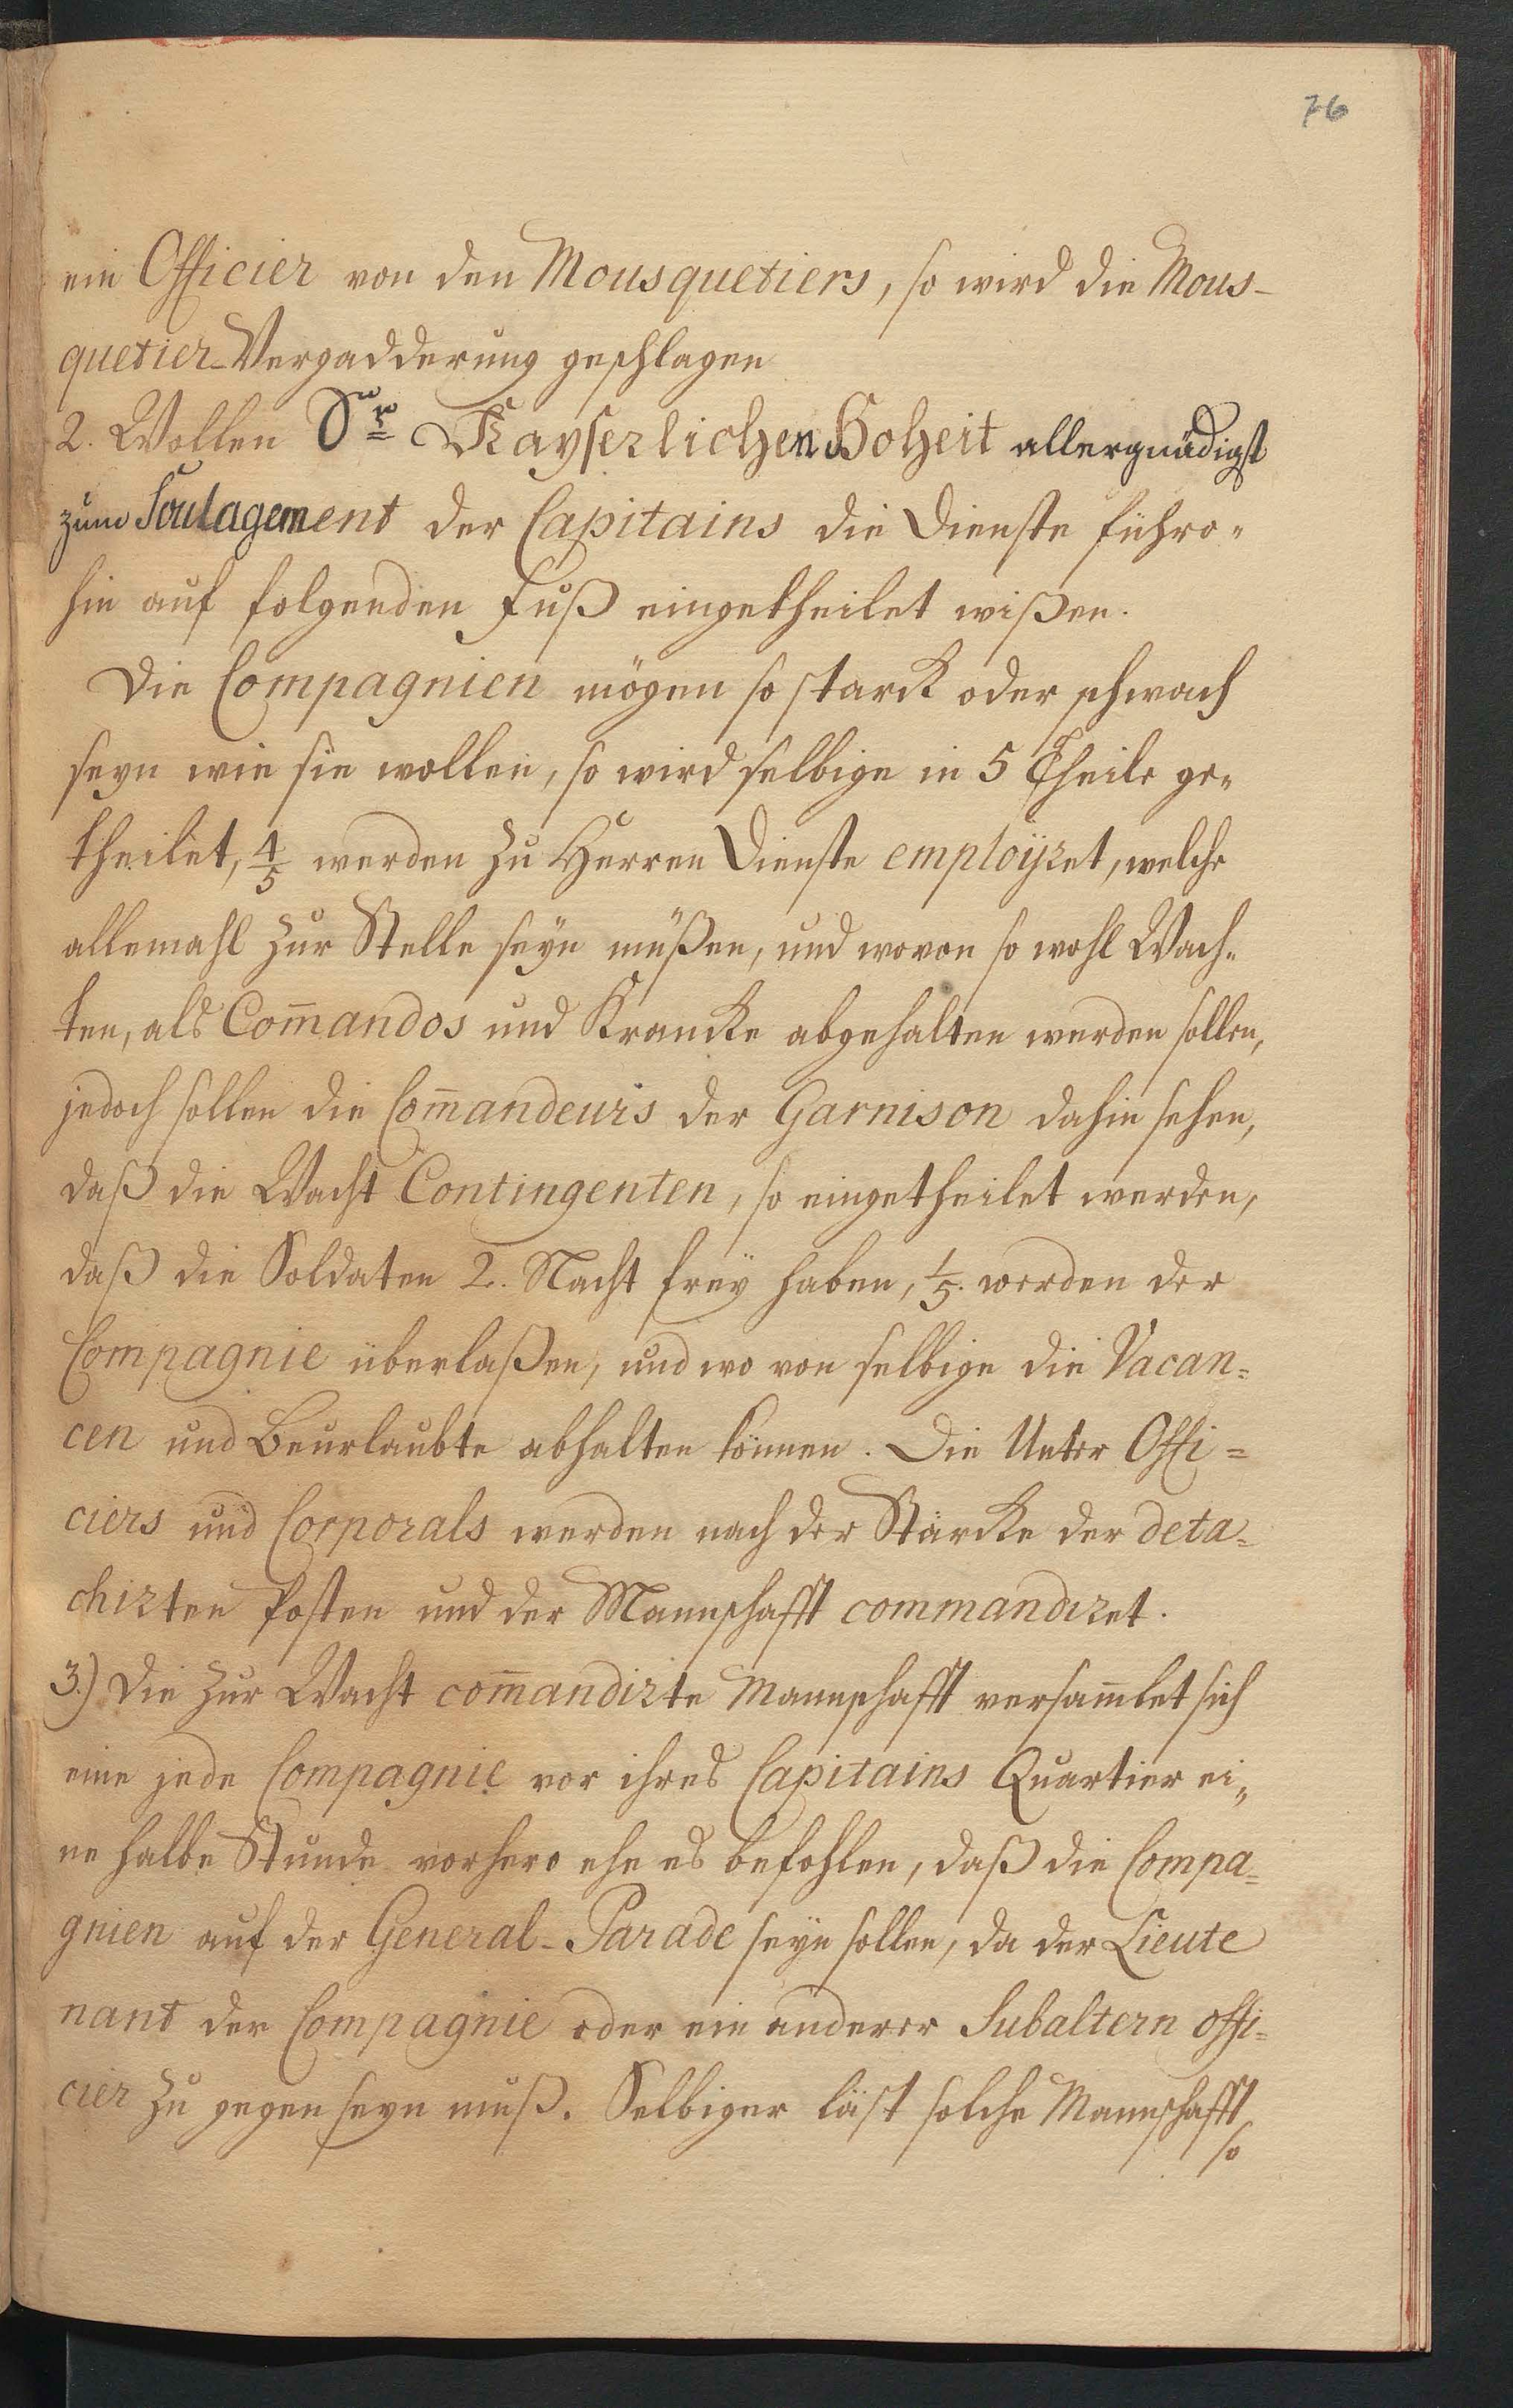 76
ein Officier von den Mousquetiers, so wird die Mous-
quetier-Vergadderung geschlagen
2. Wollen Sr Kayserlichen Hoheit allergnädigst
zum Soulagement der Capitains die Dienste führo-
hin auf folgenden Fuß eingetheilet wißen.
Die Compagnien mögen so starck oder schwach
seyn wie sie wollen, so wird selbige in 5 Theile ge-
theilet, 4/5 werden zu Herren Dienste employret, welche
allemahl zur Stelle seyn müßen, und wovon so wohl Wach-
ten, als Com̅andos und Krancke abgehalten werden sollen,
jedoch sollen die Com̅andeurs der Garnison dahin sehen,
daß die Wacht Contingenten, so eingetheilet werden,
daß die Soldaten 2. Nacht frey haben, 1/5. werden der
Compagnie überlaßen, und wo von selbige die Vacan-
cen und Beurlaubte abhalten können. Die Unter Offi=
ciers und Corporals werden nach der Stärcke der deta-
chirten Posten und der Mannschafft commandiret.
3.) Die zur Wacht com̅andirte Mannschafft versam̅let sich
eine jede Compagnie vor ihres Capitains Quartier ei-
ne halbe Stunde vorhero ehe es befohlen, daß die Compa-
gnien auf der General-Parade seyn sollen, da der Lieute
nant der Compagnie oder ein anderer Subaltern offi-
cier zu gegen seyn muß. Selbiger läst solche Mannschafft
so